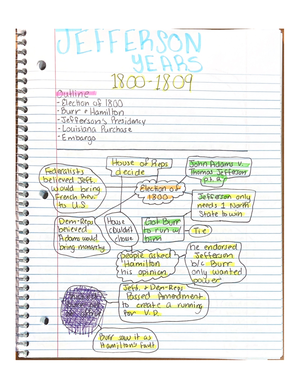 JEFFERSON
YEARS
1800-1809
Outline
- Election of 1800
- Burr + Hamilton
- Jefferson's Presidency
- Louisiana Purchase
- Embargo
House of Reps
decide
John Adams v.
Thomas Jefferson
Federalists
believed Jeff.
would bring
French Rev. to
U.S
Election of
1800
Jefferson only
needs 1 North
State to win
Dem-Reps
believed
Adams would
bring monarchy
House
couldn't
choose
Got Burr
to run w/
him
Tie
people asked
Hamilton
his opinion
he endorsed
Jefferson
b/c Burr
only wanted
power
Jeff. + Dem-Reps
Passed Amendment
to create a running
for V.P.
Burr saw it as
Hamilton's fault